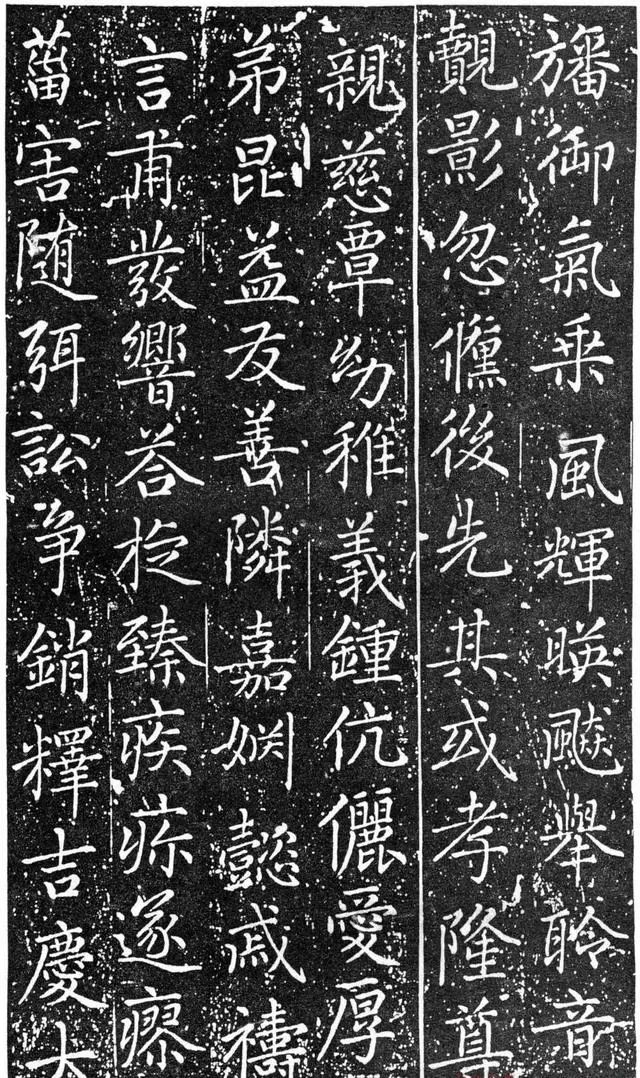 旛御氣乗風輝暎飈舉聆音
覿影忽儵後先其或孝隆尊
親慈覃幼稚義鍾伉儷愛厚
弟昆益友善隣嘉姻懿戚禱
言甫發響荅旋臻疾疹遂瘳
菑害随弭訟争銷釋吉慶大